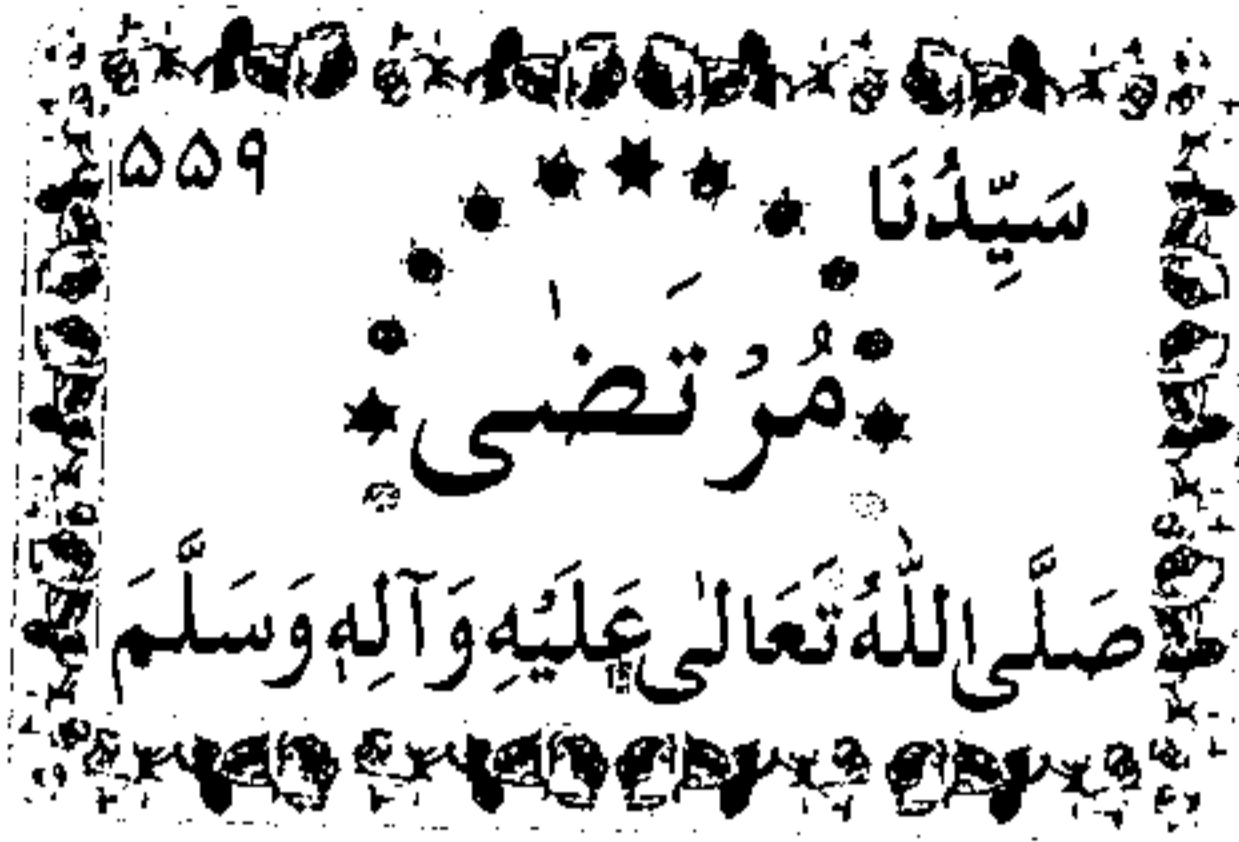 سَيِّدُنَا ۵۵۹
مُرْتَضٰى
صَلَّى اللّٰهُ تَعَالٰى عَلَيْهِ وَآلِهٖ وَسَلَّمَ